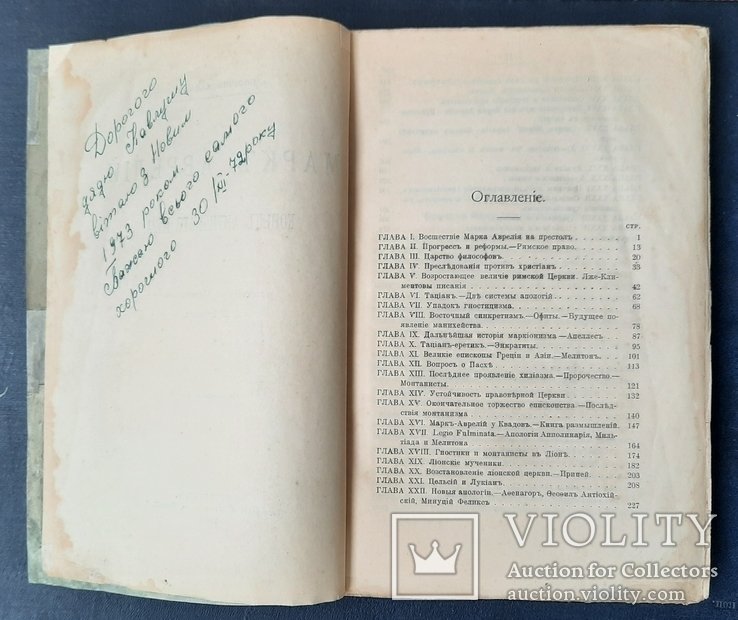 Дорогого
дядю Павлушу
вітаю З Новим
1973 роком.
Бажаю всього самого
хорошого 30/XII-72року
Оглавленіе.
СТР.
ГЛАВА I. Восшествіе Марка Аврелія на престолъ 1
ГЛАВА II. Прогрессъ и реформы.—Римское право. 13
ГЛАВА III. Царство философовъ. 20
ГЛАВА IV. Преслѣдованія противъ христіанъ 33
ГЛАВА V. Возростающее величіе римской Церкви. Лже-Кли-
ментовы писанія 42
ГЛАВА VI. Таціанъ.—Двѣ системы апологій 62
ГЛАВА VII. Упадокъ гностицизма. 68
ГЛАВА VIII. Восточный синкретизмъ.—Офиты.—Будущее по-
явленіе манихейства 78
ГЛАВА IX. Дальнѣйшая исторія маркіонизма.—Апеллесъ 87
ГЛАВА X. Таціанъ-еретикъ.—Энкратиты. 95
ГЛАВА XI. Великіе епископы Греціи и Азіи.—Мелитонъ. 101
ГЛАВА XII. Вопросъ о Пасхѣ 113
ГЛАВА XIII. Послѣднее проявленіе хиліазма.—Пророчество.—
Монтанисты. 121
ГЛАВА XIV. Устойчивость правовѣрной Церкви 132
ГЛАВА XV. Окончательное торжество епископства.—Послѣд-
ствія монтанизма 140
ГЛАВА XVI. Маркъ-Аврелій у Квадовъ.—Книга размышленій. 147
ГЛАВА XVII. Legio Fulminata.—Апологіи Апполинарія, Миль-
тіада и Мелитона 164
ГЛАВА XVIII. Гностики и монтанисты въ Ліонѣ. 174
ГЛАВА XIX. Ліонскіе мученики 182
ГЛАВА XX. Возстановленіе ліонской церкви.—Ириней. 203
ГЛАВА XXI. Цельсій и Лукіанъ. 208
ГЛАВА XXII. Новыя апологіи.—Аѳенагоръ, Ѳеофилъ Антіохій-
скій, Минуцій Феликсъ 227
VIOLITY
Auction for Collectors
auction.violity.com